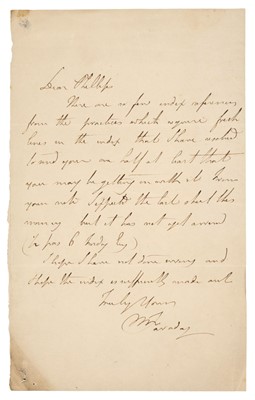 Dear Phillips
There are so few index references
from the practices which require fresh
lines in the index that I have resolved
to send you one half at least that
you may be getting on with it. From
your note I expected the last sheet this
morning but it has not yet arrived
I hope I have not done wrong and
I hope the index is sufficiently made out
Truly Yours
M Faraday